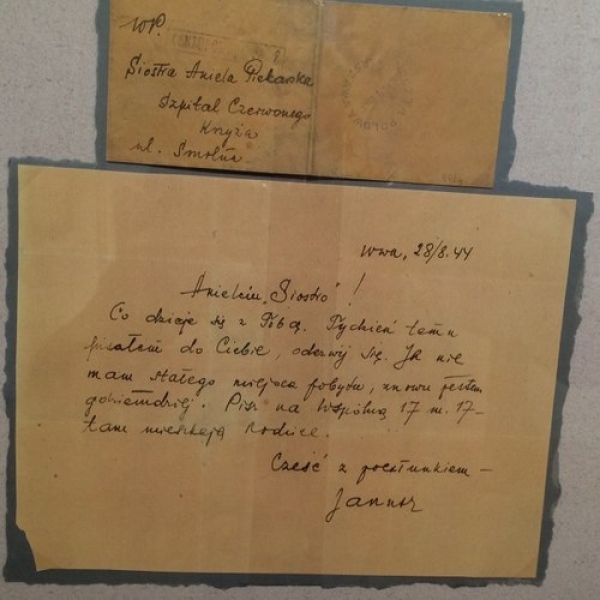 WP.
Siostra Aniela Piekarska
Szpital Czerwonego
Krzyża
ul. Smolna
Wwa, 28/8.44
Anielciu „Siostro” !
Co dzieje się z Tobą. Tydzień temu
pisałem do Ciebie, odezwij się. Ja nie
mam stałego miejsca pobytu, znowu jestem
gdzieindziej. Pisz na Wspólną 17 m. 17 –
tam mieszkają rodzice.
Cześć z pocałunkiem –
Janusz